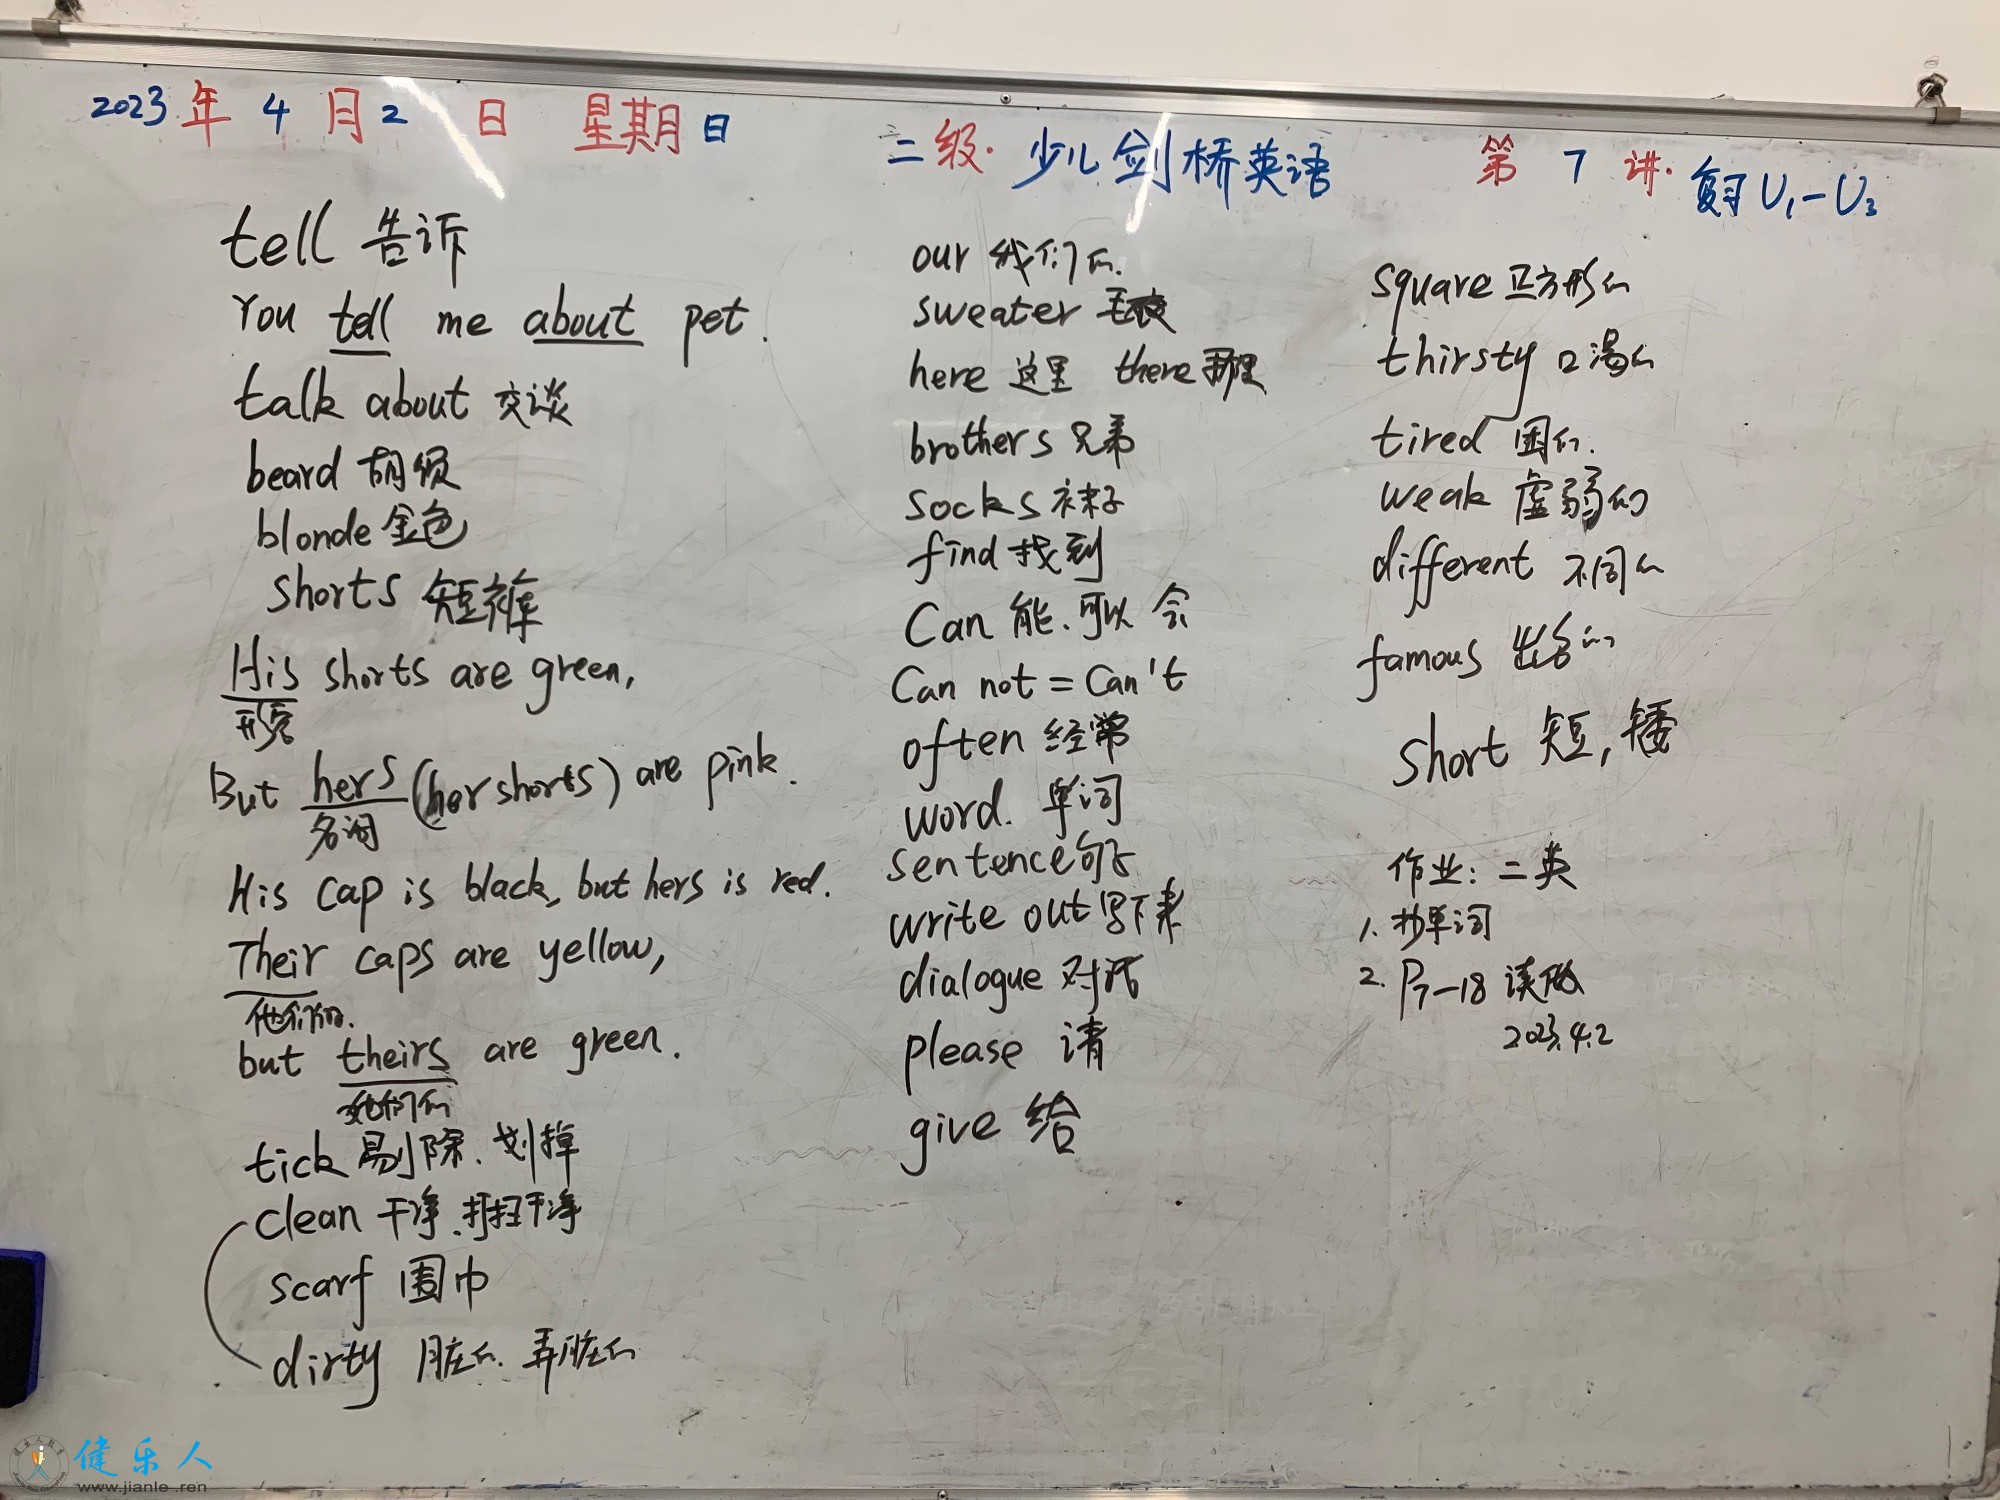 2023年4月2日 星期日
二级·少儿剑桥英语
第7讲·复习U1-U3
tell 告诉
You tell me about pet.
talk about 交谈
beard 胡须
blonde 金色
shorts 短裤
His shorts are green,
形容
But hers (her shorts) are pink.
名词
His cap is black, but hers is red.
Their caps are yellow,
他们的.
but theirs are green.
她们的
tick 剔除、划掉
clean 干净、打扫干净
scarf 围巾
dirty 脏的、弄脏的
our 我们的.
sweater 毛衣
here 这里 there 那里
brothers 兄弟
socks 袜子
find 找到
Can 能、可以 会
Can not = Can't
often 经常
word. 单词
sentence 句子
write out 写下来
dialogue 对话
please 请
give 给
square 正方形的
thirsty 口渴的
tired 困的.
weak 虚弱的
different 不同的
famous 出名的
short 短,矮
作业: 二英
1. 抄单词
2. P7-18 读熟
2023.4.2
健乐人
www.jianle.ren